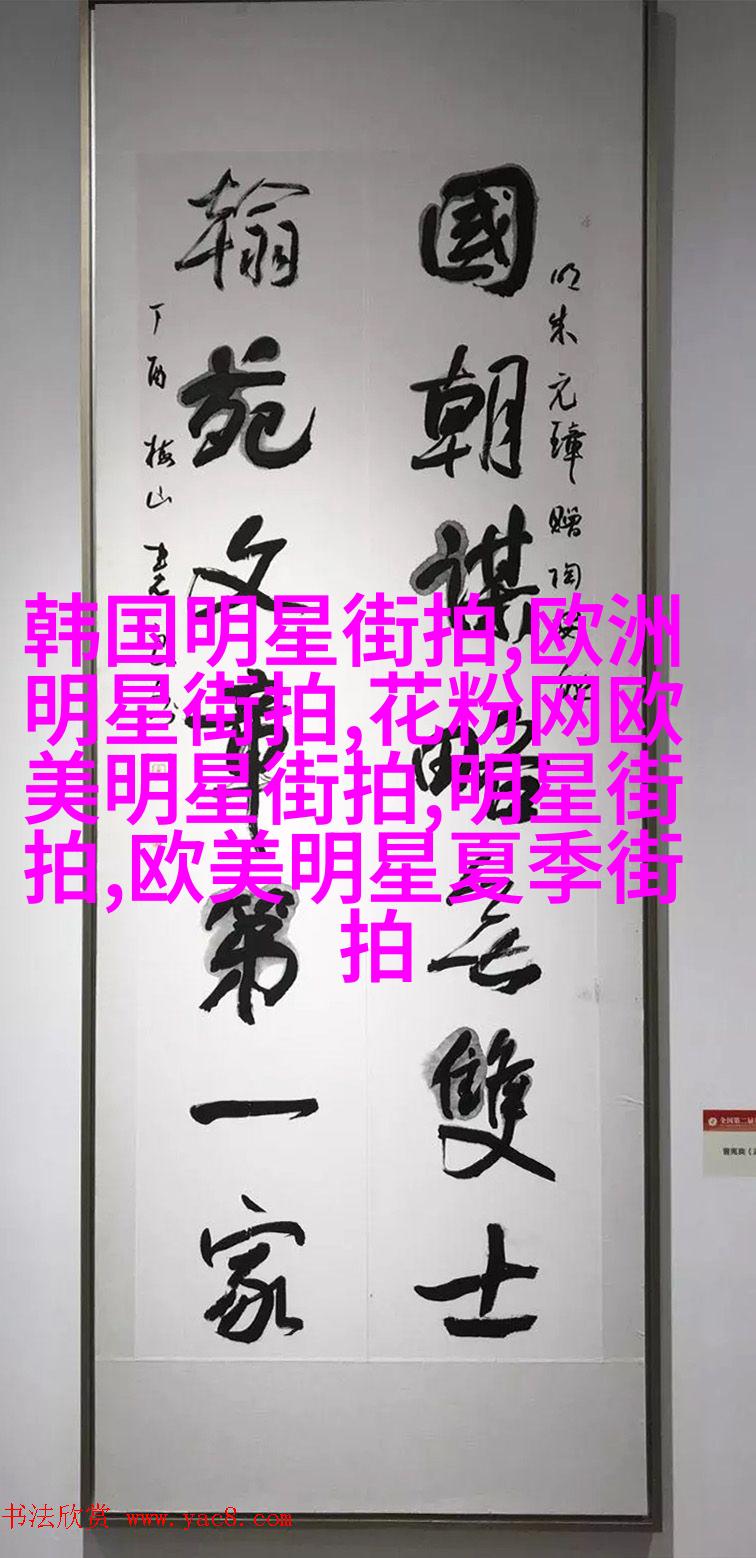 明朱元璋赠陶安
國朝謀略無雙士
翰苑文章第一家
丁酉 梅山
韩国明星街拍,欧洲
明星街拍,花粉网欧
美明星街拍,明星街
拍,欧美明星夏季街
拍
全国第二届
曾宪爽
书法欣赏 www.yac8.com